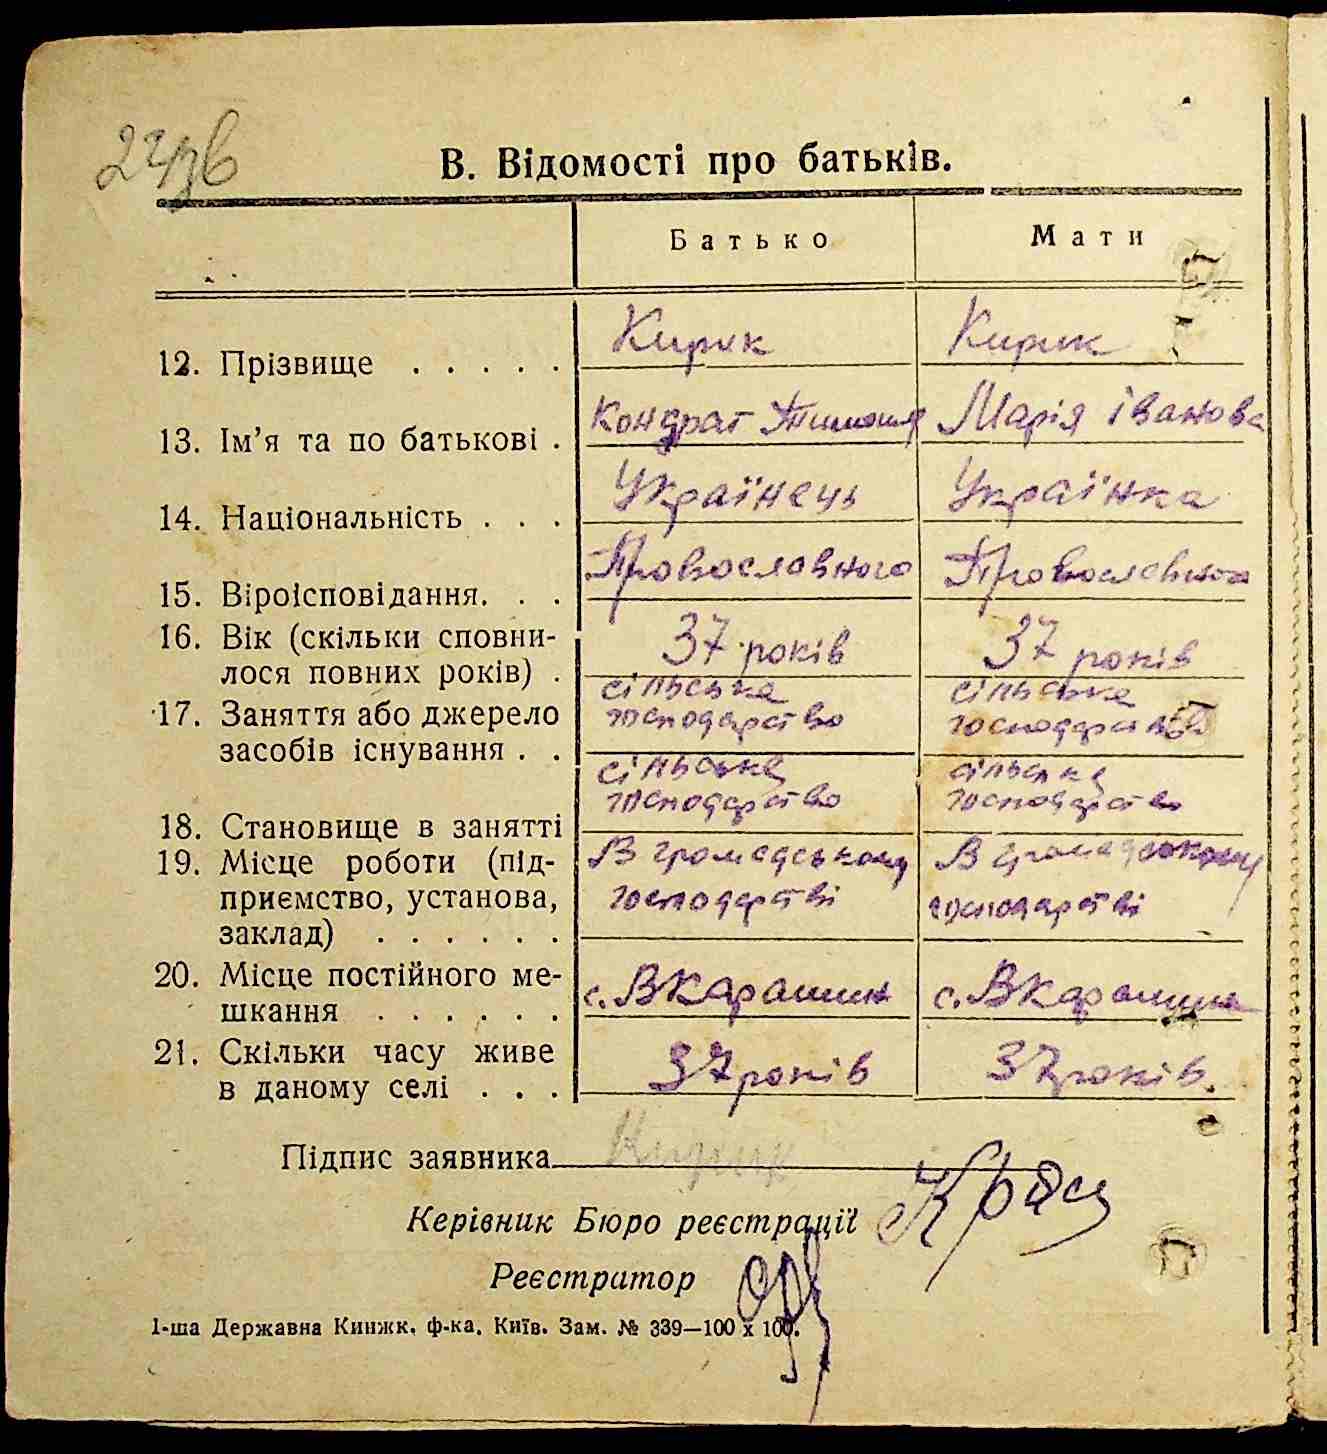 В. Відомості про батьків.
Батько Мати
12. Прізвище . . . . . Кирик Кирик
13. Ім’я та по батькові . Кондрат Тимош Марія Іванова
14. Національність . . . Українець Українка
15. Віроісповідання. . . Провославного Провославного
16. Вік (скільки сповни-
лося повних років) . 37 років 37 років
17. Заняття або джерело сільське сільське
засобів існування . . господарство господарство
сільське сільське
18. Становище в занятті господарство господарство
19. Місце роботи (під- В громадському В громадському
приємство, установа, господарстві господарстві
заклад) . . . . . .
20. Місце постійного ме- с. ВКарашин с. ВКарашин
шкання . . . . . .
21. Скільки часу живе 37 років 37 років.
в даному селі . . .
Підпис заявника Кирик
Керівник Бюро реєстрації
Реєстратор
1-ша Державна Кинжк. ф-ка. Київ. Зам. № 339—100 х 100.